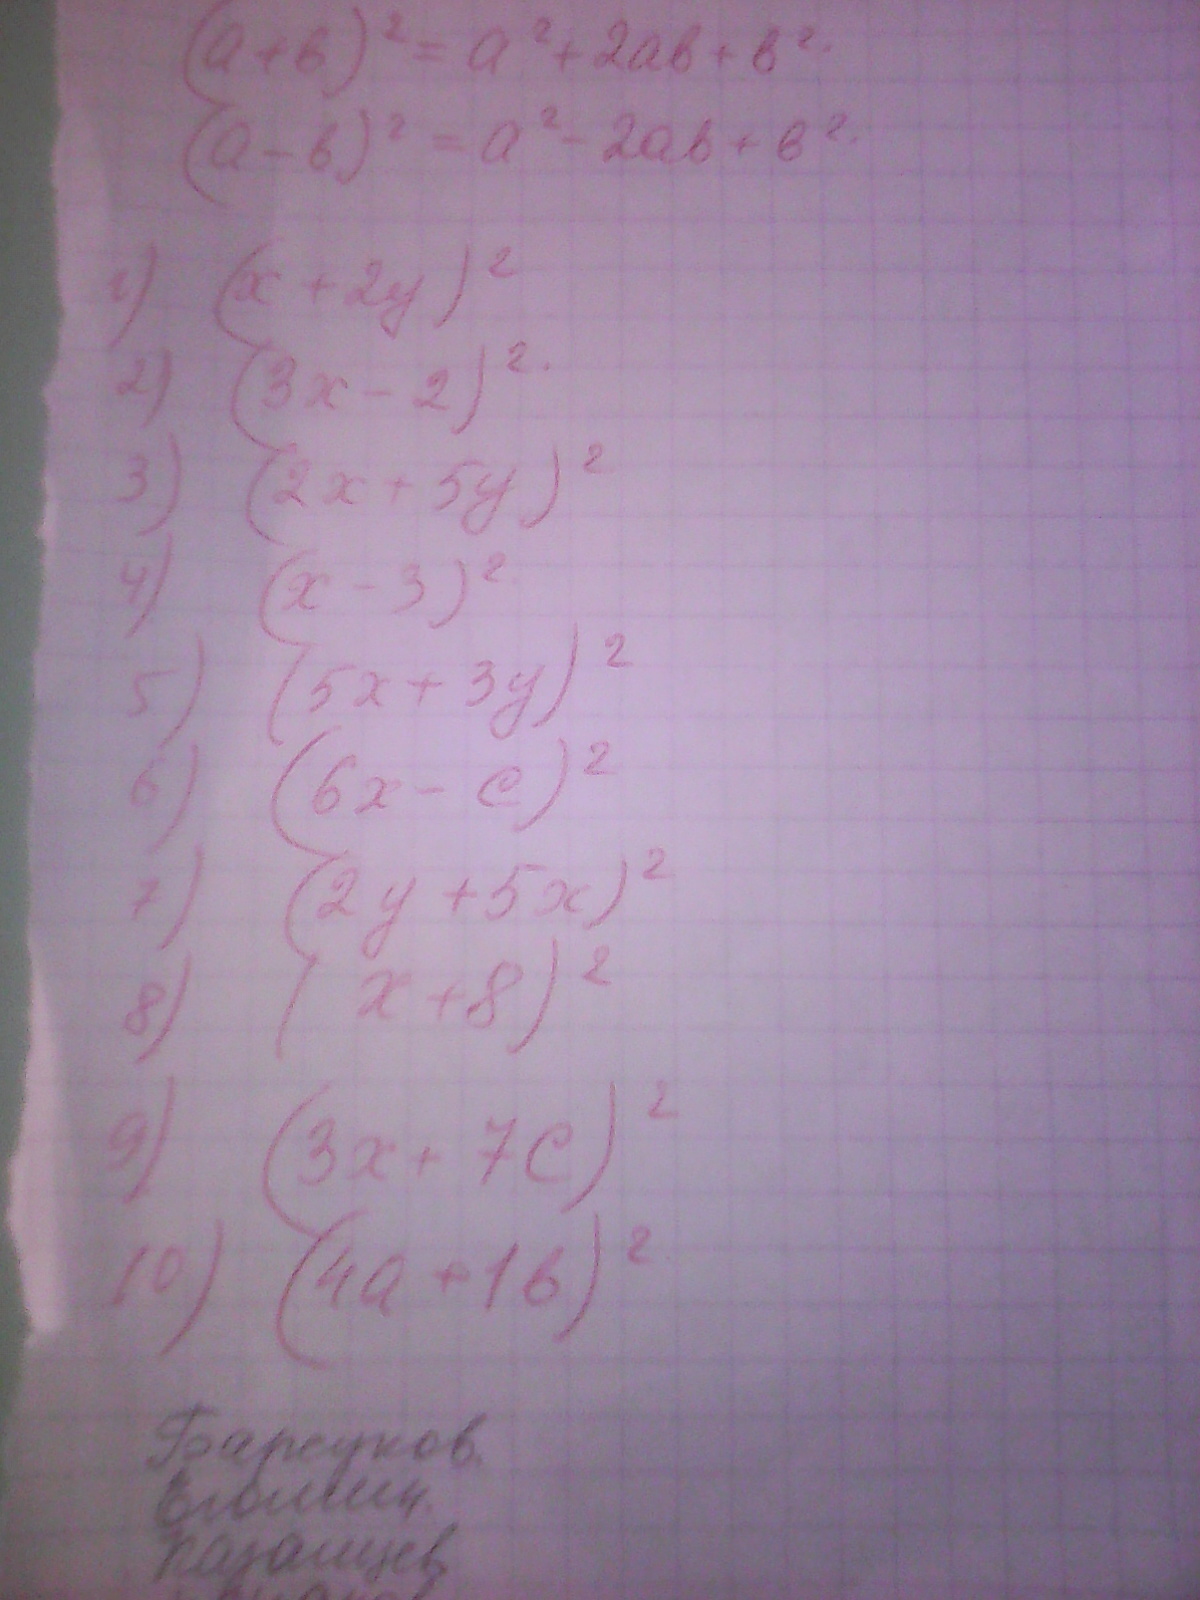 (a+b)² = a² + 2ab + b².
(a-b)² = a² - 2ab + b².
1) (x + 2y)²
2) (3x - 2)².
3) (2x + 5y)²
4) (x - 3)².
5) (5x + 3y)²
6) (6x - c)²
7) (2y + 5x)²
8) (x + 8)²
9) (3x + 7c)²
10) (4a + 1b)²
Барсуков.
Казанцев